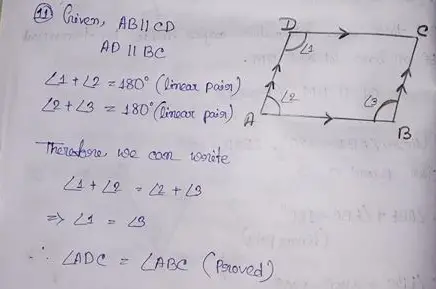 11 Given, AB || CD
AD || BC
∠1 + ∠2 = 180° (linear pair)
∠2 + ∠3 = 180° (linear pair)
Therefore, we can write
∠1 + ∠2 = ∠2 + ∠3
⇒ ∠1 = ∠3
∴ ∠ADC = ∠ABC (Proved)
D
C
∠1
∠2
∠3
A
B